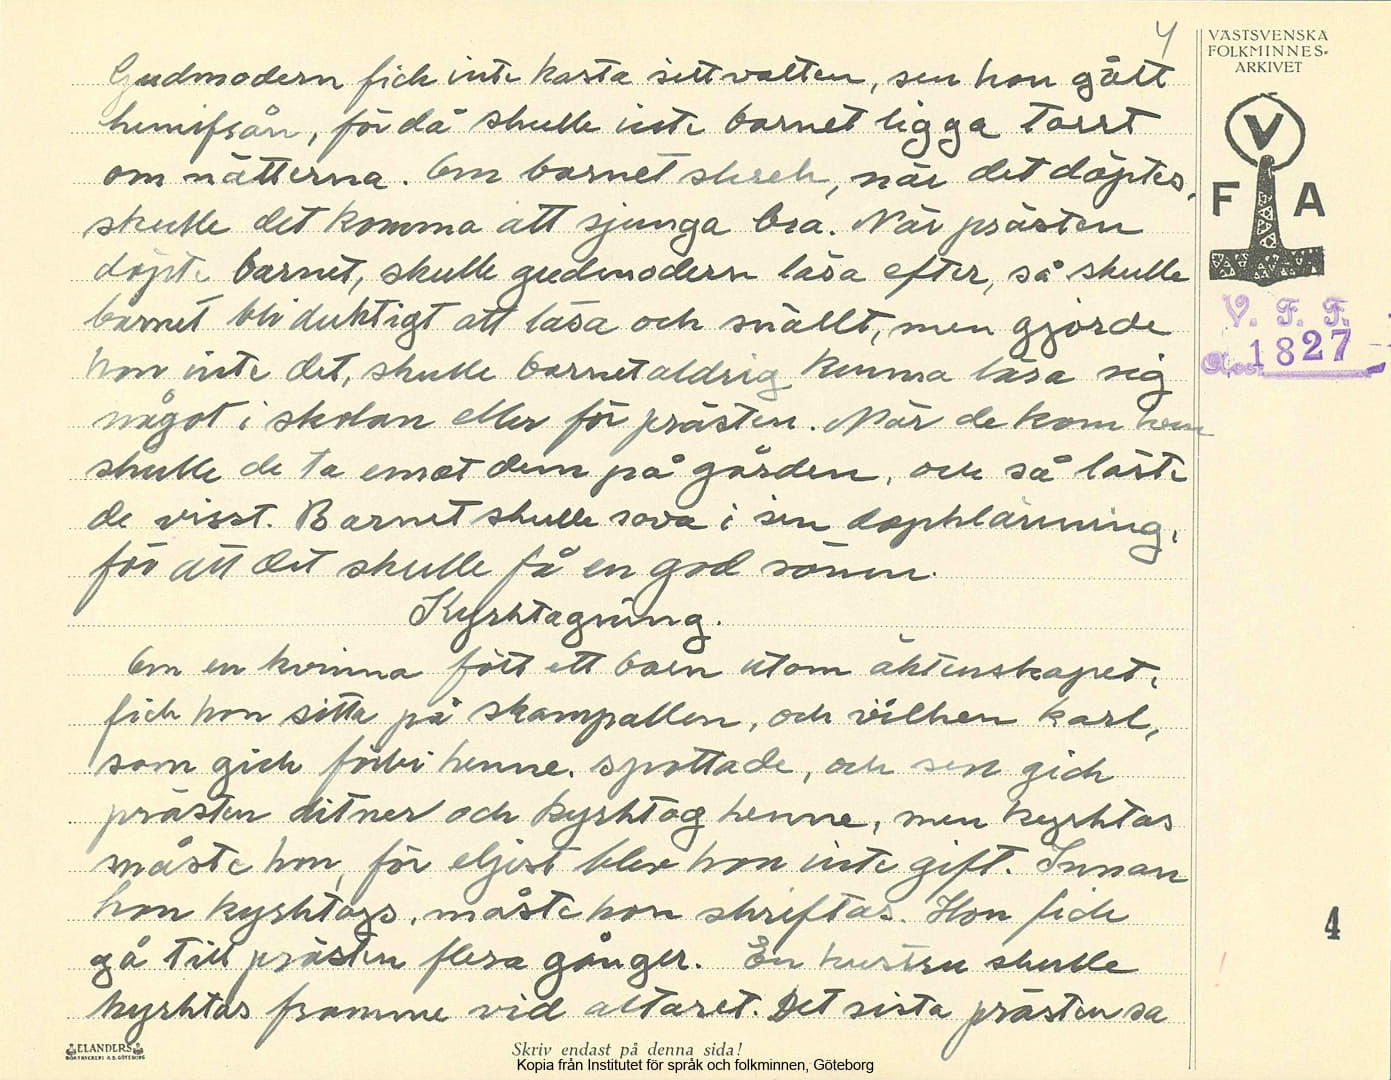 4
VÄSTSVENSKA
FOLKMINNES-
ARKIVET
V
F A
V. F. F.
Acc. 1827
Gudmodern fick inte kasta sitt vatten, sen hon gått
hemifrån, för då skulle inte barnet ligga torrt
om nätterna. Om barnet skrek, när det döptes,
skulle det komma att sjunga bra. När prästen
döpte barnet, skulle gudmodern läsa efter, så skulle
barnet bli duktigt att läsa och snällt, men gjorde
hon inte det, skulle barnet aldrig kunna lära sig
något i skolan eller för prästen. När de kom hem
skulle de ta emot dem på gården, och så läste
de visst. Barnet skulle sova i sin dopklänning,
för att det skulle få en god sömn.
Kyrktagning.
Om en kvinna fött ett barn utom äktenskapet,
fick hon sitta på skampallen, och vilken karl,
som gick förbi henne, spottade, och sen gick
prästen dit ner och kyrktog henne, men kyrktas
måste hon, för eljest blev hon inte gift. Innan
hon kyrktogs, måste hon skriftas. Hon fick
gå till prästen flera gånger. En hustru skulle
kyrktas framme vid altaret. Det sista prästen sa
4
ELANDERS
BOKTRYCKERI A.B. GÖTEBORG
Skriv endast på denna sida!
Kopia från Institutet för språk och folkminnen, Göteborg